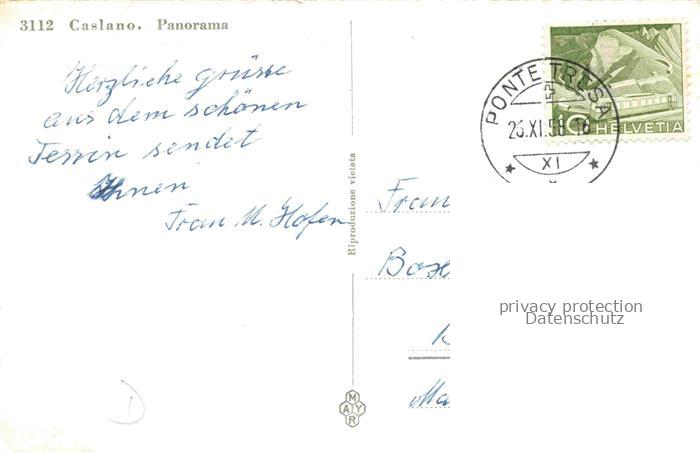 3112 Caslano. Panorama
Herzliche grüsse
aus dem schönen
Tessin sendet
Ihnen
Frau M. Hofen
Riproduzione vietata
MAYR
PONTE TRESA
26.XI.58 16
XI
10 HELVETIA
Frau
privacy protection
Datenschutz
D